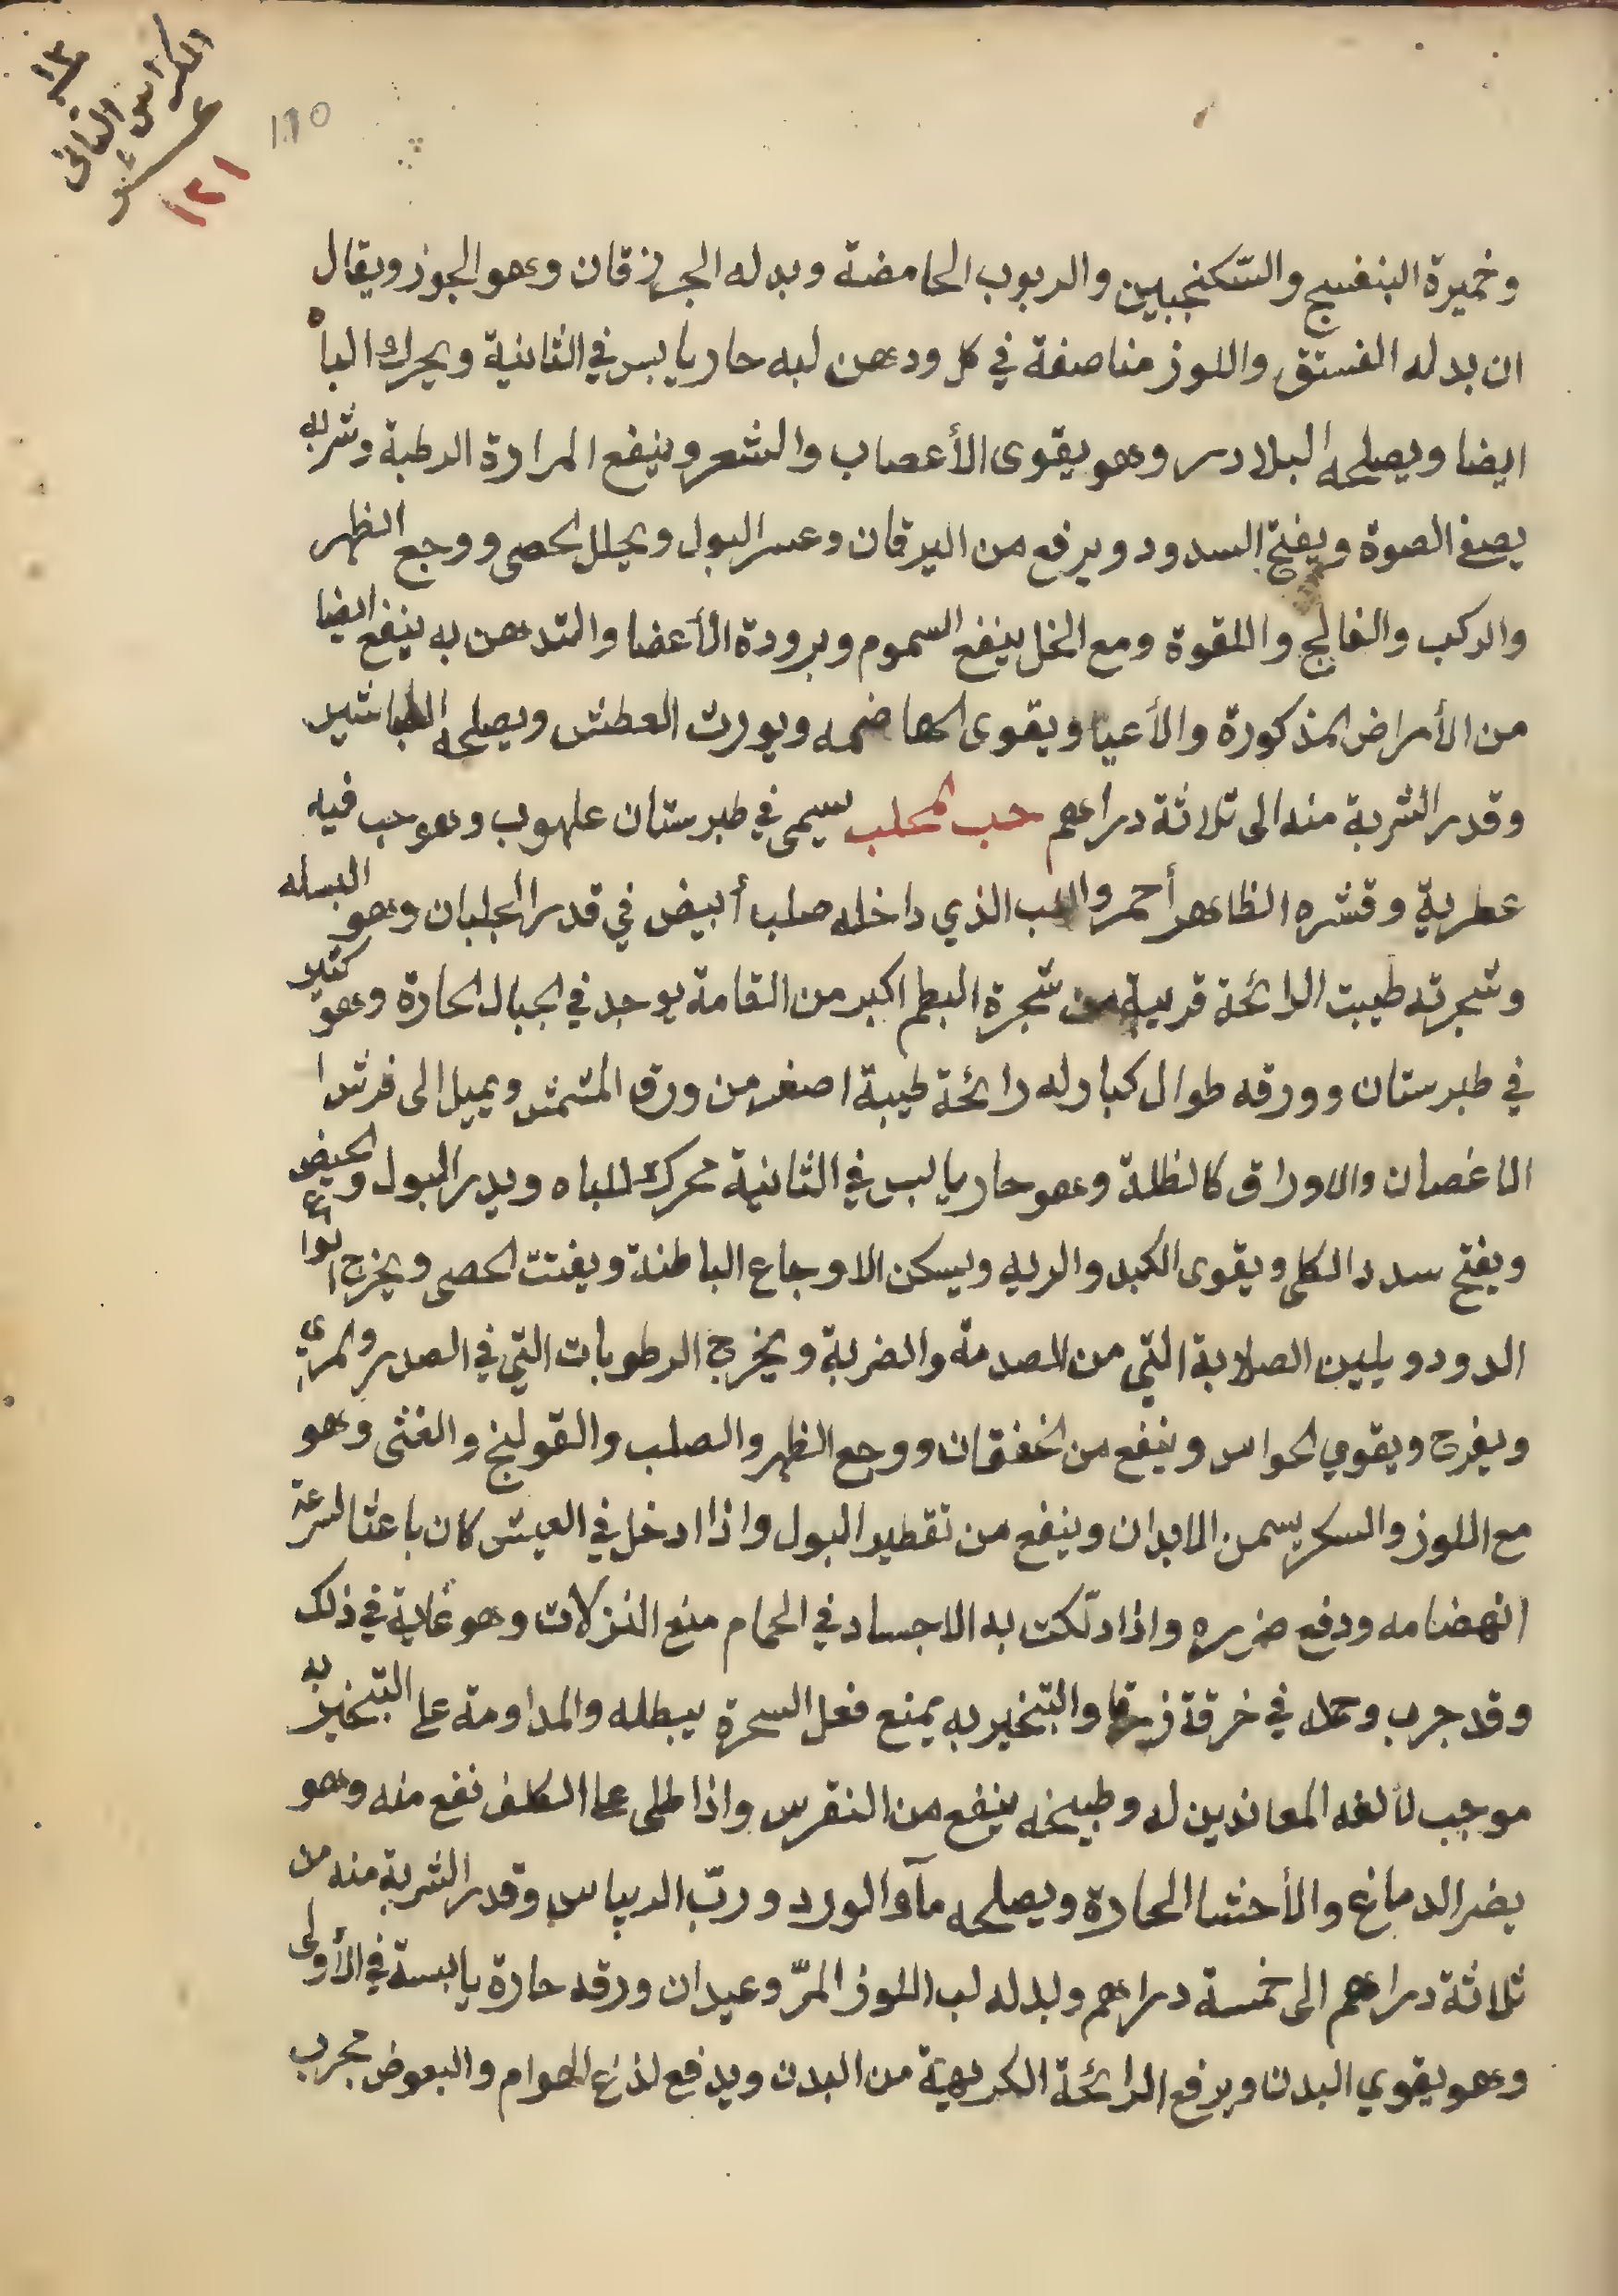 ١٣
الكراس الثاني
عشر
١٢١
١٢٥
وخميرة البنفسج والسّكنجبين والربوب الحامضة وبدله الجرزقان وهو الجوز ويقال
ان بدله الفستق واللوز مناصفة في كل ودهن لبه حار يابس في الثانية ويحرك الباه
ايضا ويصلحه البلادر وهو يقوى الأعصاب والشعر وينفع المرارة الرطبة وشربه
يصفي الصوة ويفتح السدود ويرفع من اليرقان وعسر البول ويحلل الحصى ووجع الظهر
والركب والفالج واللقوة ومع الخل ينفع السموم وبرودة الأعضا والتدهن به ينفع ايضا
من الأمراض المذكورة والأعيا ويقوى الهاضمه ويورث العطش ويصلحه الطباشير
وقدر الشربة منه الى ثلاثة دراهم حب المحلب يسمى في طبرستان علهوب وهو حب فيه
عطرية وقشره الظاهر أحمر واللب الذي داخله صلب أبيض في قدر الجلبان وهو البسله
وشجرته طيبت الرائحة قريبة من شجرة البطم اكبر من القامة يوجد في الجبال الحارة وهو كثير
في طبرستان وورقه طوال كبار له رائحة طيبة اصغر من ورق المشمش ويميل الى فرش ا
الاغصان والاوراق كالظلة وهو حار يابس في الثانية محرك للباه ويدر البول والحيض
ويفتح سدد الكلى ويقوى الكبد والريه ويسكن الاوجاع الباطنة ويفتت الحصى ويخرج انواع
الدود ويلين الصلابة التي من الصدمة والضربة ويخرج الرطوبات التي في الصدر والمري
ويفرح ويقوي الحواس وينفع من الخفقان ووجع الظهر والصلب والقولنج والغثى وهو
مع اللوز والسكر يسمن الابدان وينفع من تقطير البول واذا ادخل في العيش كان باعثا لسرعة
انهضامه ودفع ضرره واذا دلّكت به الاجساد في الحمام منع النزلات وهو غاية في ذلك
وقد جرب وحمله في خرقة زرقا والتبخير به يمنع فعل السحرة يبطله والمداومة على التبخير به
موجب لألفه المعاندين له وطبيخه ينفع من النقرس واذا طلى على الكلف نفع منه وهو
يضر الدماغ والأحشا الحارة ويصلحه مآء الورد وربّ الريباس وقدر الشربة منه من
ثلاثة دراهم الى خمسة دراهم وبدله لب اللوز المرّ وعيدان ورقه حارة يابسة في الأولى
وهو يقوي البدن ويرفع الرائحة الكريهة من البدن ويدفع لذع الهوام والبعوض مجرب